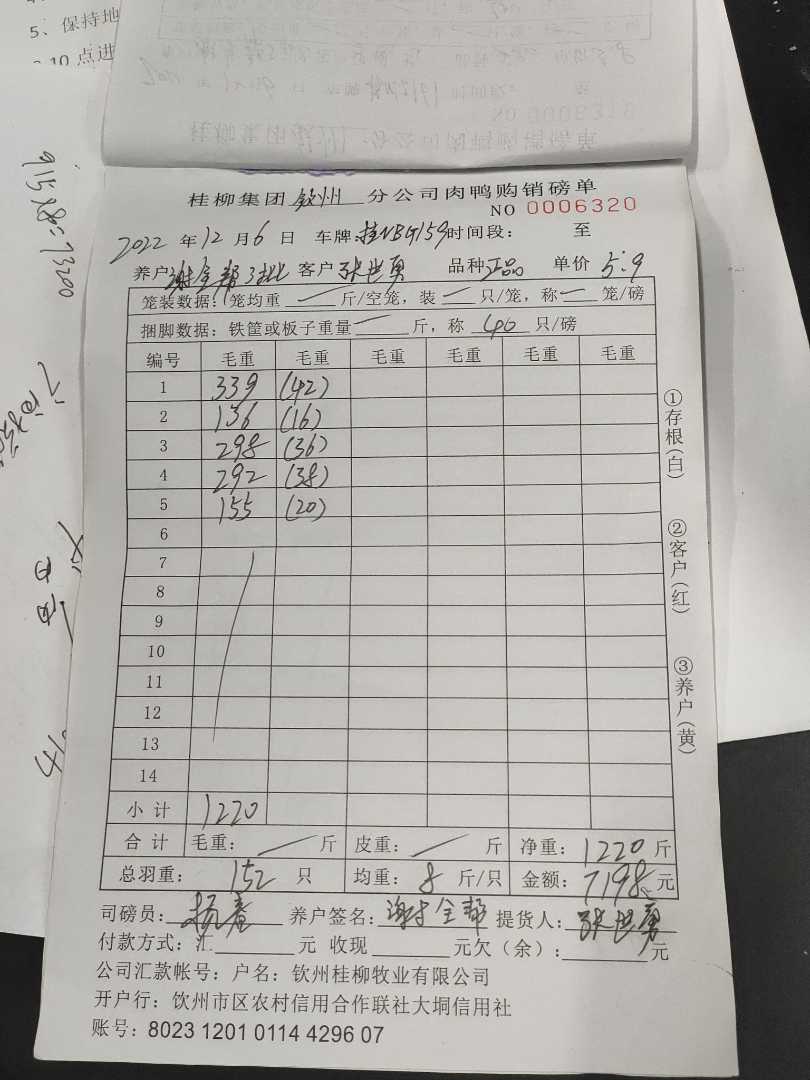 5、保持地
10 点进
915×8=73200
桂柳集团 钦州 分公司肉鸭购销磅单
NO 0006320
2022 年 12 月 6 日 车牌:桂NBG159 时间段: 至
养户:谢全帮 3批 客户 张世勇 品种 正品 单价 5.9
笼装数据: 笼均重 — 斤/空笼, 装 — 只/笼, 称 — 笼/磅
捆脚数据: 铁筐或板子重量 — 斤, 称 40 只/磅
编号 毛重 毛重 毛重 毛重 毛重 毛重
1 339 (42)
2 136 (16)
3 298 (36)
4 292 (38)
5 155 (20)
6
7
8
9
10
11
12
13
14
小计 1220
合计 毛重: — 斤 皮重: — 斤 净重: 1220 斤
总羽重: 152 只 均重: 8 斤/只 金额: 7198 元
司磅员: 养户签名: 谢全帮 提货人: 张世勇
付款方式: 汇 元 收现 元欠(余): 元
公司汇款帐号: 户名: 钦州桂柳牧业有限公司
开户行: 钦州市区农村信用合作联社大垌信用社
账号: 8023 1201 0114 4296 07
①存根(白)
②客户(红)
③养户(黄)